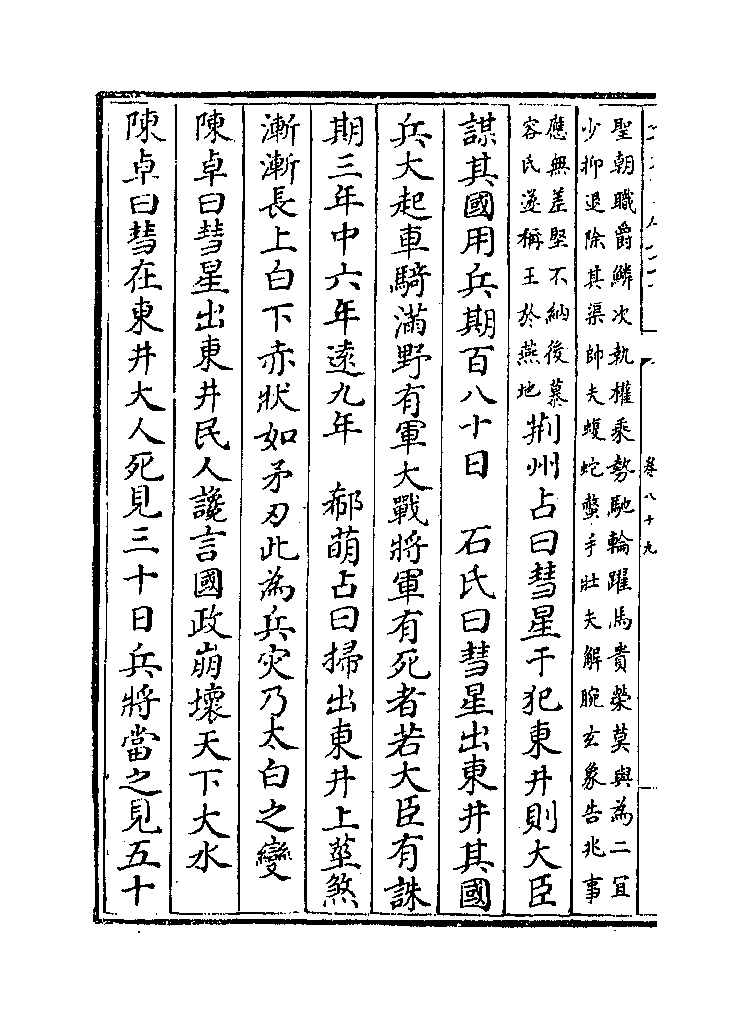 卷八十九
聖朝職爵鱗次執權乘勢馳輪躍馬貴榮莫與為二宜
少抑退除其渠帥夫蝮蛇螫手壯夫解腕玄象告兆事
應無差堅不納後慕
容氏遂稱王於燕地
荆州占曰彗星干犯東井則大臣
謀其國用兵期百八十日 石氏曰彗星出東井其國
兵大起車騎滿野有軍大戰將軍有死者若大臣有誅
期三年中六年遠九年 郗萌占曰掃出東井上莖煞
漸漸長上白下赤狀如矛刃此為兵灾乃太白之變
陳卓曰彗星出東井民人讒言國政崩壞天下大水
陳卓曰彗在東井大人死見三十日兵將當之見五十